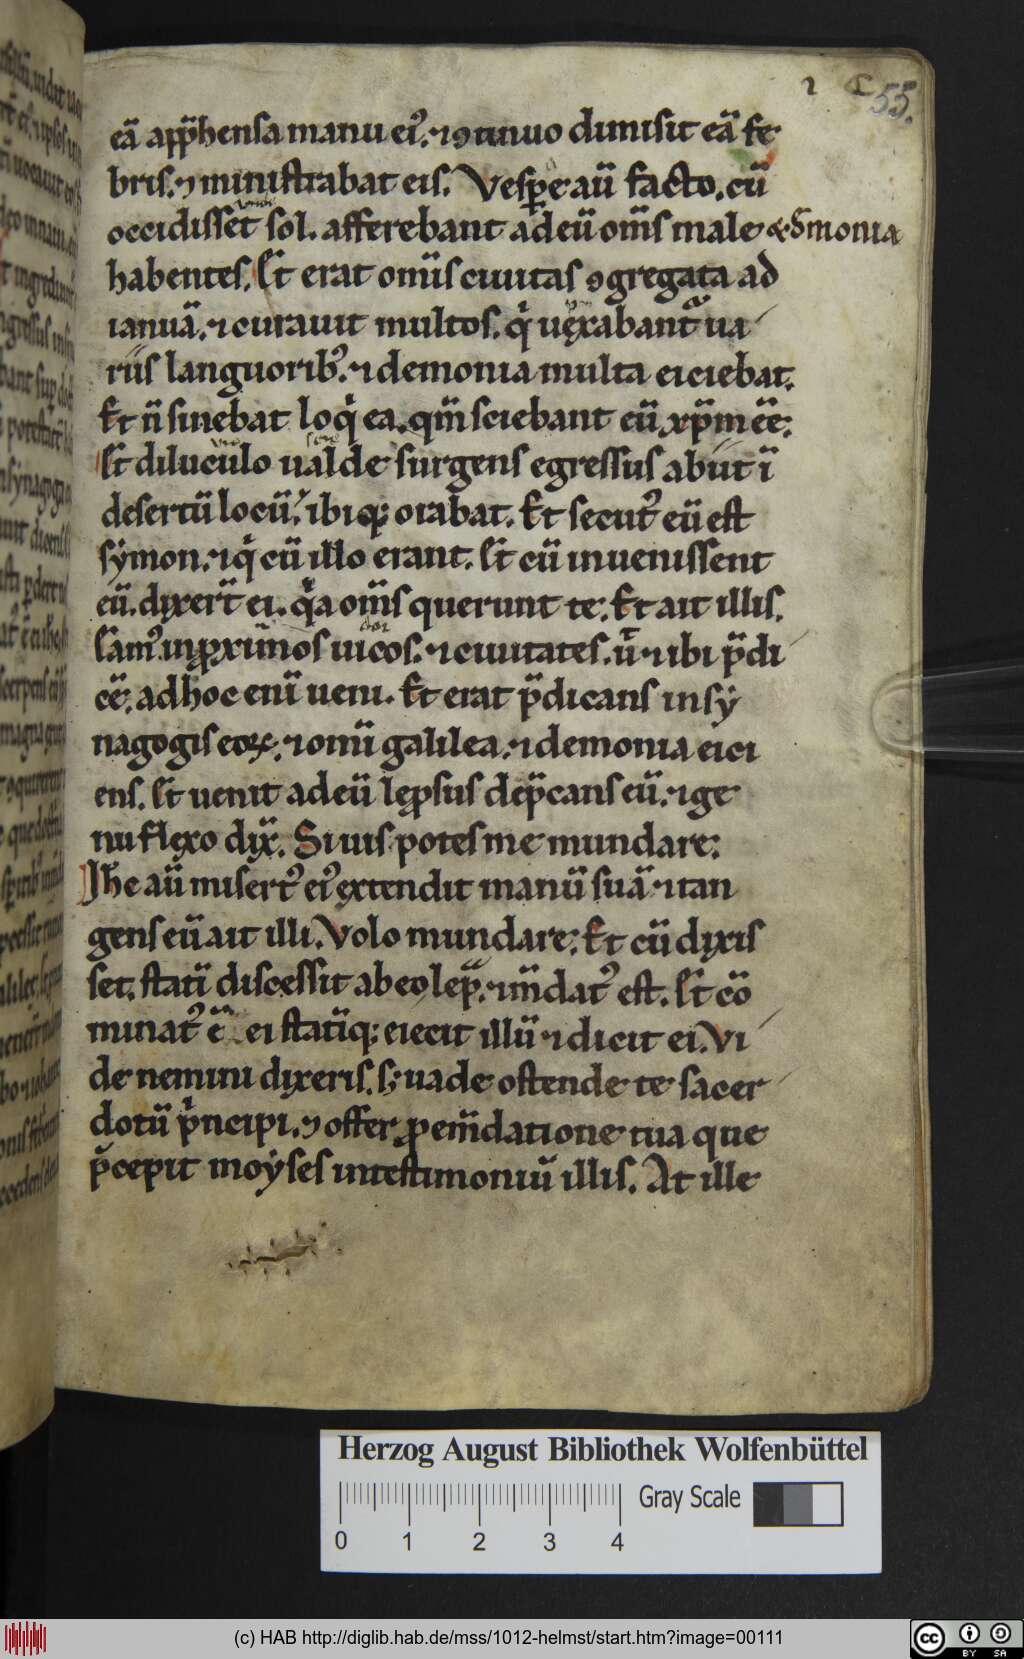 ı c 55.
eā app̄hensa manu ei᾽. ⁊ ꝯtinuo dimisit eā fe
bris. ⁊ ministrabat eis. Vesꝑe aū facto. cū
occidisset sol. afferebant ad eū om̄s male & dēmonia
habentes. Et erat om̄is ciuitas ꝯgregata ad
ianuā. ⁊ curauit multos. qͥ uexabant᷑ ua
riis languorib᾽. ⁊ demonia multa eiciebat.
Et n̄ sinebat loqͥ ea. qm̄ sciebant eū xp̄m eē.
Et diluculo ualde surgens egressus abiit ī
desertū locū. ibiqꝫ orabat. Et secut᾽ eū est
sẏmon. ⁊ qͥ cū illo erant. Et cū inuenissent
eū. dixer̄t ei. qͥa om̄s querunt te. Et ait illis.
Eam᾽ in ꝓximos uicos. ⁊ ciuitates. ut ⁊ ibi p̄di
cē. ad hoc enī ueni. Et erat p̄dicans in sẏ
nagogis eoꝝ. ⁊ om̄i galilea. ⁊ demonia eici
ens. Et uenit ad eū leprosus dep̄cans eū. ⁊ ge
nu flexo dix̄. Si uis potes me mundare.
Ihc aū misert᾽ ei᾽ extendit manū suā ⁊ tan
gens eū ait illi. Volo mundare. Et cū dixis
set. statī discessit ab eo lep̄. ⁊ mūdat᾽ est. Et cō
minat᾽ ē ei statīqꝫ eiecit illū ⁊ dicit ei. Vi
de nemini dixeris. sꝫ uade ostende te sacer
dotū pͥncipi. ⁊ offer ꝓ em̄datione tua que
p̄cepit moẏses in testimoniū illis. At ille
Herzog August Bibliothek Wolfenbüttel
Gray Scale
0 1 2 3 4
(c) HAB http://diglib.hab.de/mss/1012-helmst/start.htm?image=00111
cc BY SA